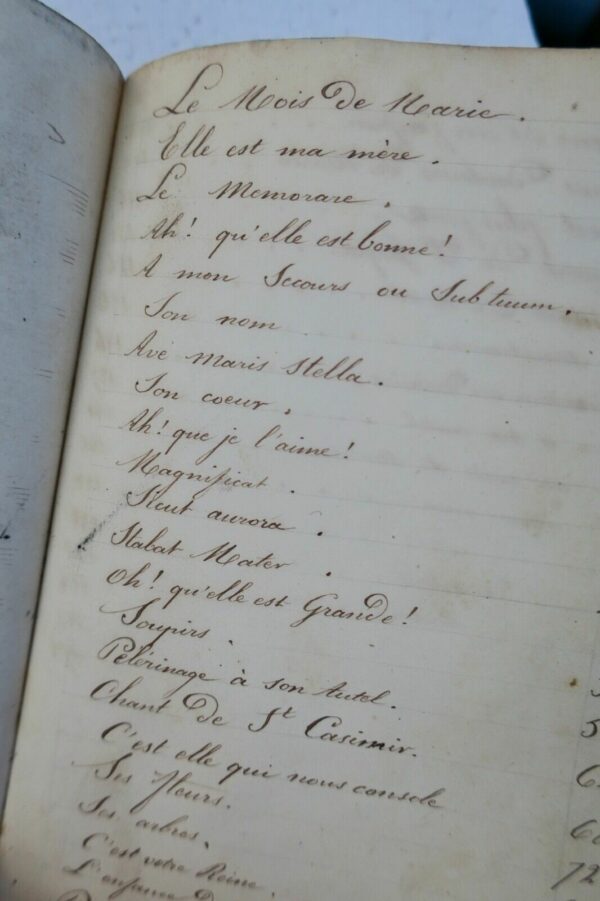 Le Mois de Marie.
Elle est ma mère.
Le Memorare.
Ah! qu'elle est bonne!
A mon Secours ou Sub tuum.
Son nom
Ave maris Stella.
Son coeur.
Ah! que je l'aime!
Magnificat.
Sicut aurora.
Stabat Mater.
Oh! qu'elle est Grande!
Soupirs.
Pélérinage à son Autel.
Chant de St Casimir.
C'est elle qui nous console
Ses fleurs.
Ses arbres.
72
C'est votre Reine.
L'enfance